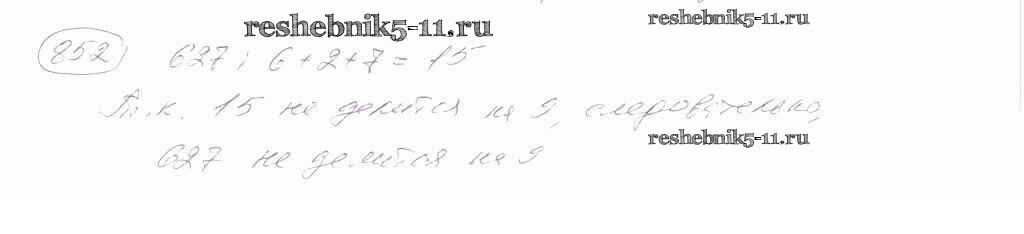 reshebnik5-11.ru
reshebnik5-11.ru
852) 627; 6+2+7=15
Т.к. 15 не делится на 9, следовательно,
reshebnik5-11.ru
627 не делится на 9